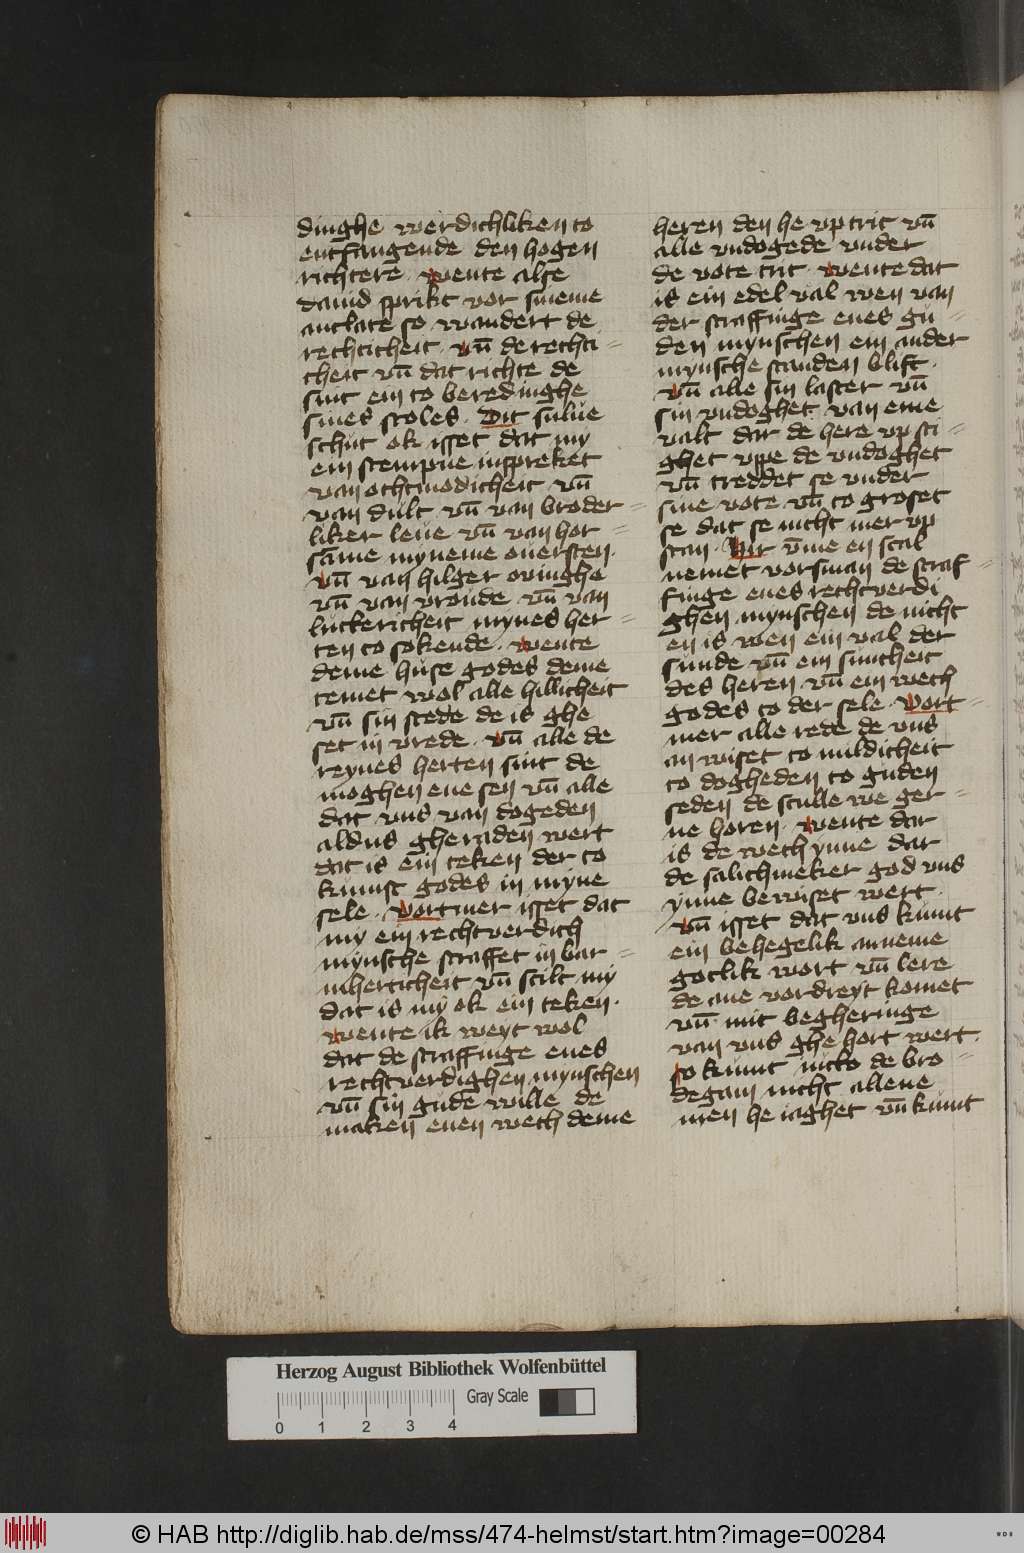 dinghe werdichliken to
entfangende den hogen
richtere. wente alse
dauid sprikt vor sineme
antlate so wandert de
rechticheit. vn̄ de rechti=
cheit vn̄ dat richte de
sint ein to beredinghe
sines stoles. Dit sulue
schut ok isset dat my
ein stempne inspreket
van othmodicheit vn̄
van dult vn̄ van broder=
liker leue vn̄ van hor=
sāme myneme ouersten.
vn̄ van hilger ouingha
vn̄ van vroude vn̄ van
luckericheit mynes her=
ten to sokende. wente
deme huse godes deme
temet wol alle hillicheit
vn̄ sin stede de is ghe
set in vrede. vn̄ alle de
reynes herten sint de
moghen ene sen vn̄ alle
dat vns van dogeden
aldus gheraden wert
dat is ein teken der to
kumst godes in myne
sele. vortmer isset dat
my ein rechtverdich
mynsche straffet in bar=
mherticheit vn̄ scilt my
dat is my ok ein teken.
wente ik weyt wol
dat de straffinge enes
rechtverdighen mynschen
vn̄ sin gude wille de
maken enen wech deme
heren den he vp trit vn̄
alle vndogede vnder
de vote trit. wente dat
is ein edel val wen van
der straffinge enes gu=
den mynschen ein ander
mynsche standen blift.
vn̄ alle sin laster vn̄
sin vndoghet van eme
valt dar de here vp sti=
ghet vppe de vndoghet
vn̄ treddet se vnder
sine vote vn̄ to groset
se dat se nicht mer vp
stan. Hir v̄me en scal
nemet vorsman de straf=
finge enes rechtverdi
ghen mynschen de nicht
en is wen ein val der
sunde vn̄ ein suntheit
des heren vn̄ ein wech
godes to der sele. Vort=
mer alle rede de vns
an wiset to mildicheit
to dogheden to guden
seden de sculle we ger=
ne horen. wente dar
is de wech ynne dar
de salichmeker god vns
ynne bewiset wert.
vn̄ isset dat vns kumt
ein behegelik anneme
gotlik wort vn̄ lere
de ane vordreyt komet
vn̄ mit begheringe
van vns ghe hort wert.
so kumt nicto de bro=
degam nicht allene
men he iaghet vn̄ kumt
Herzog August Bibliothek Wolfenbüttel
Gray Scale
0 1 2 3 4
© HAB http://diglib.hab.de/mss/474-helmst/start.htm?image=00284